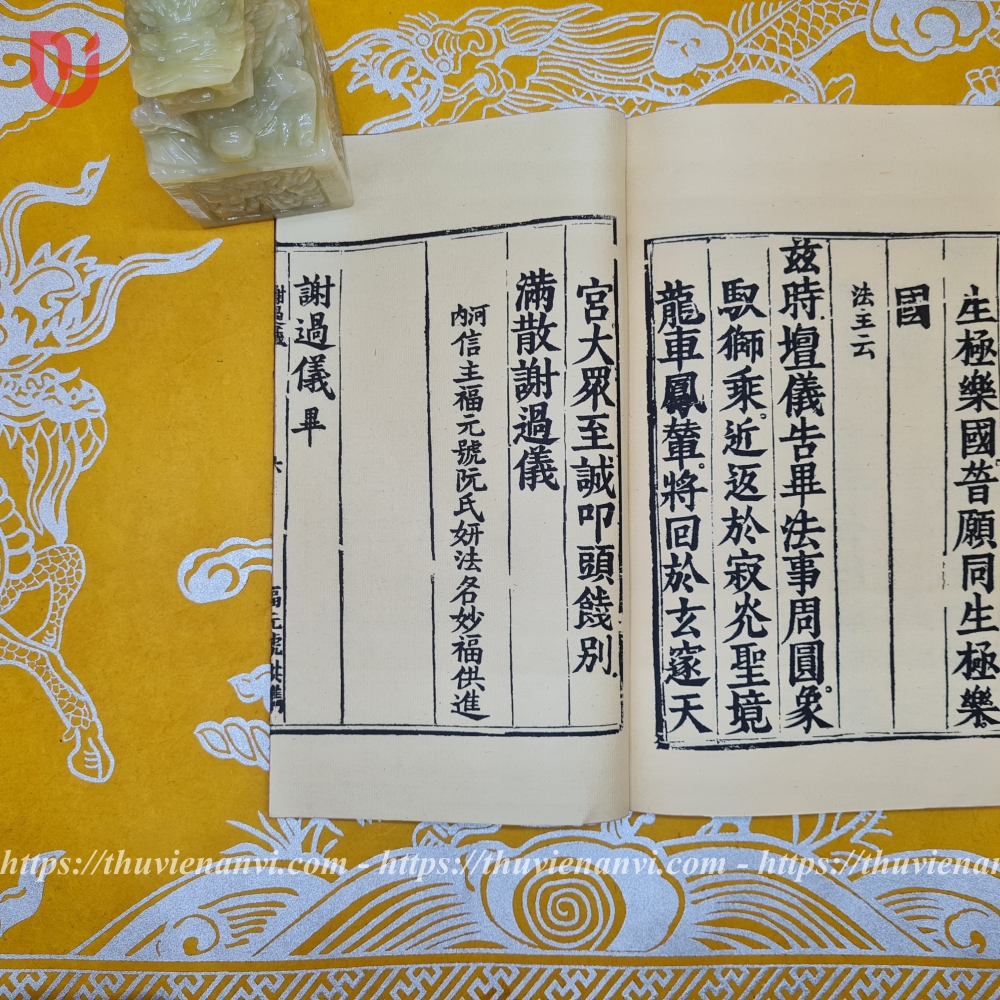 生極樂國。普願同生極樂
國
法主云
茲時壇儀告畢法事周圓。象
馭獅乘。近返於寂光聖境
龍車鳳輦。將回於玄邃天
宮大眾至誠叩頭餞別
滿散謝過儀
河內信主福元號阮氏妍法名妙福供進
謝過儀畢
https://thuvienanvi.com - https://thuvienanvi.com - https://thuvienanv